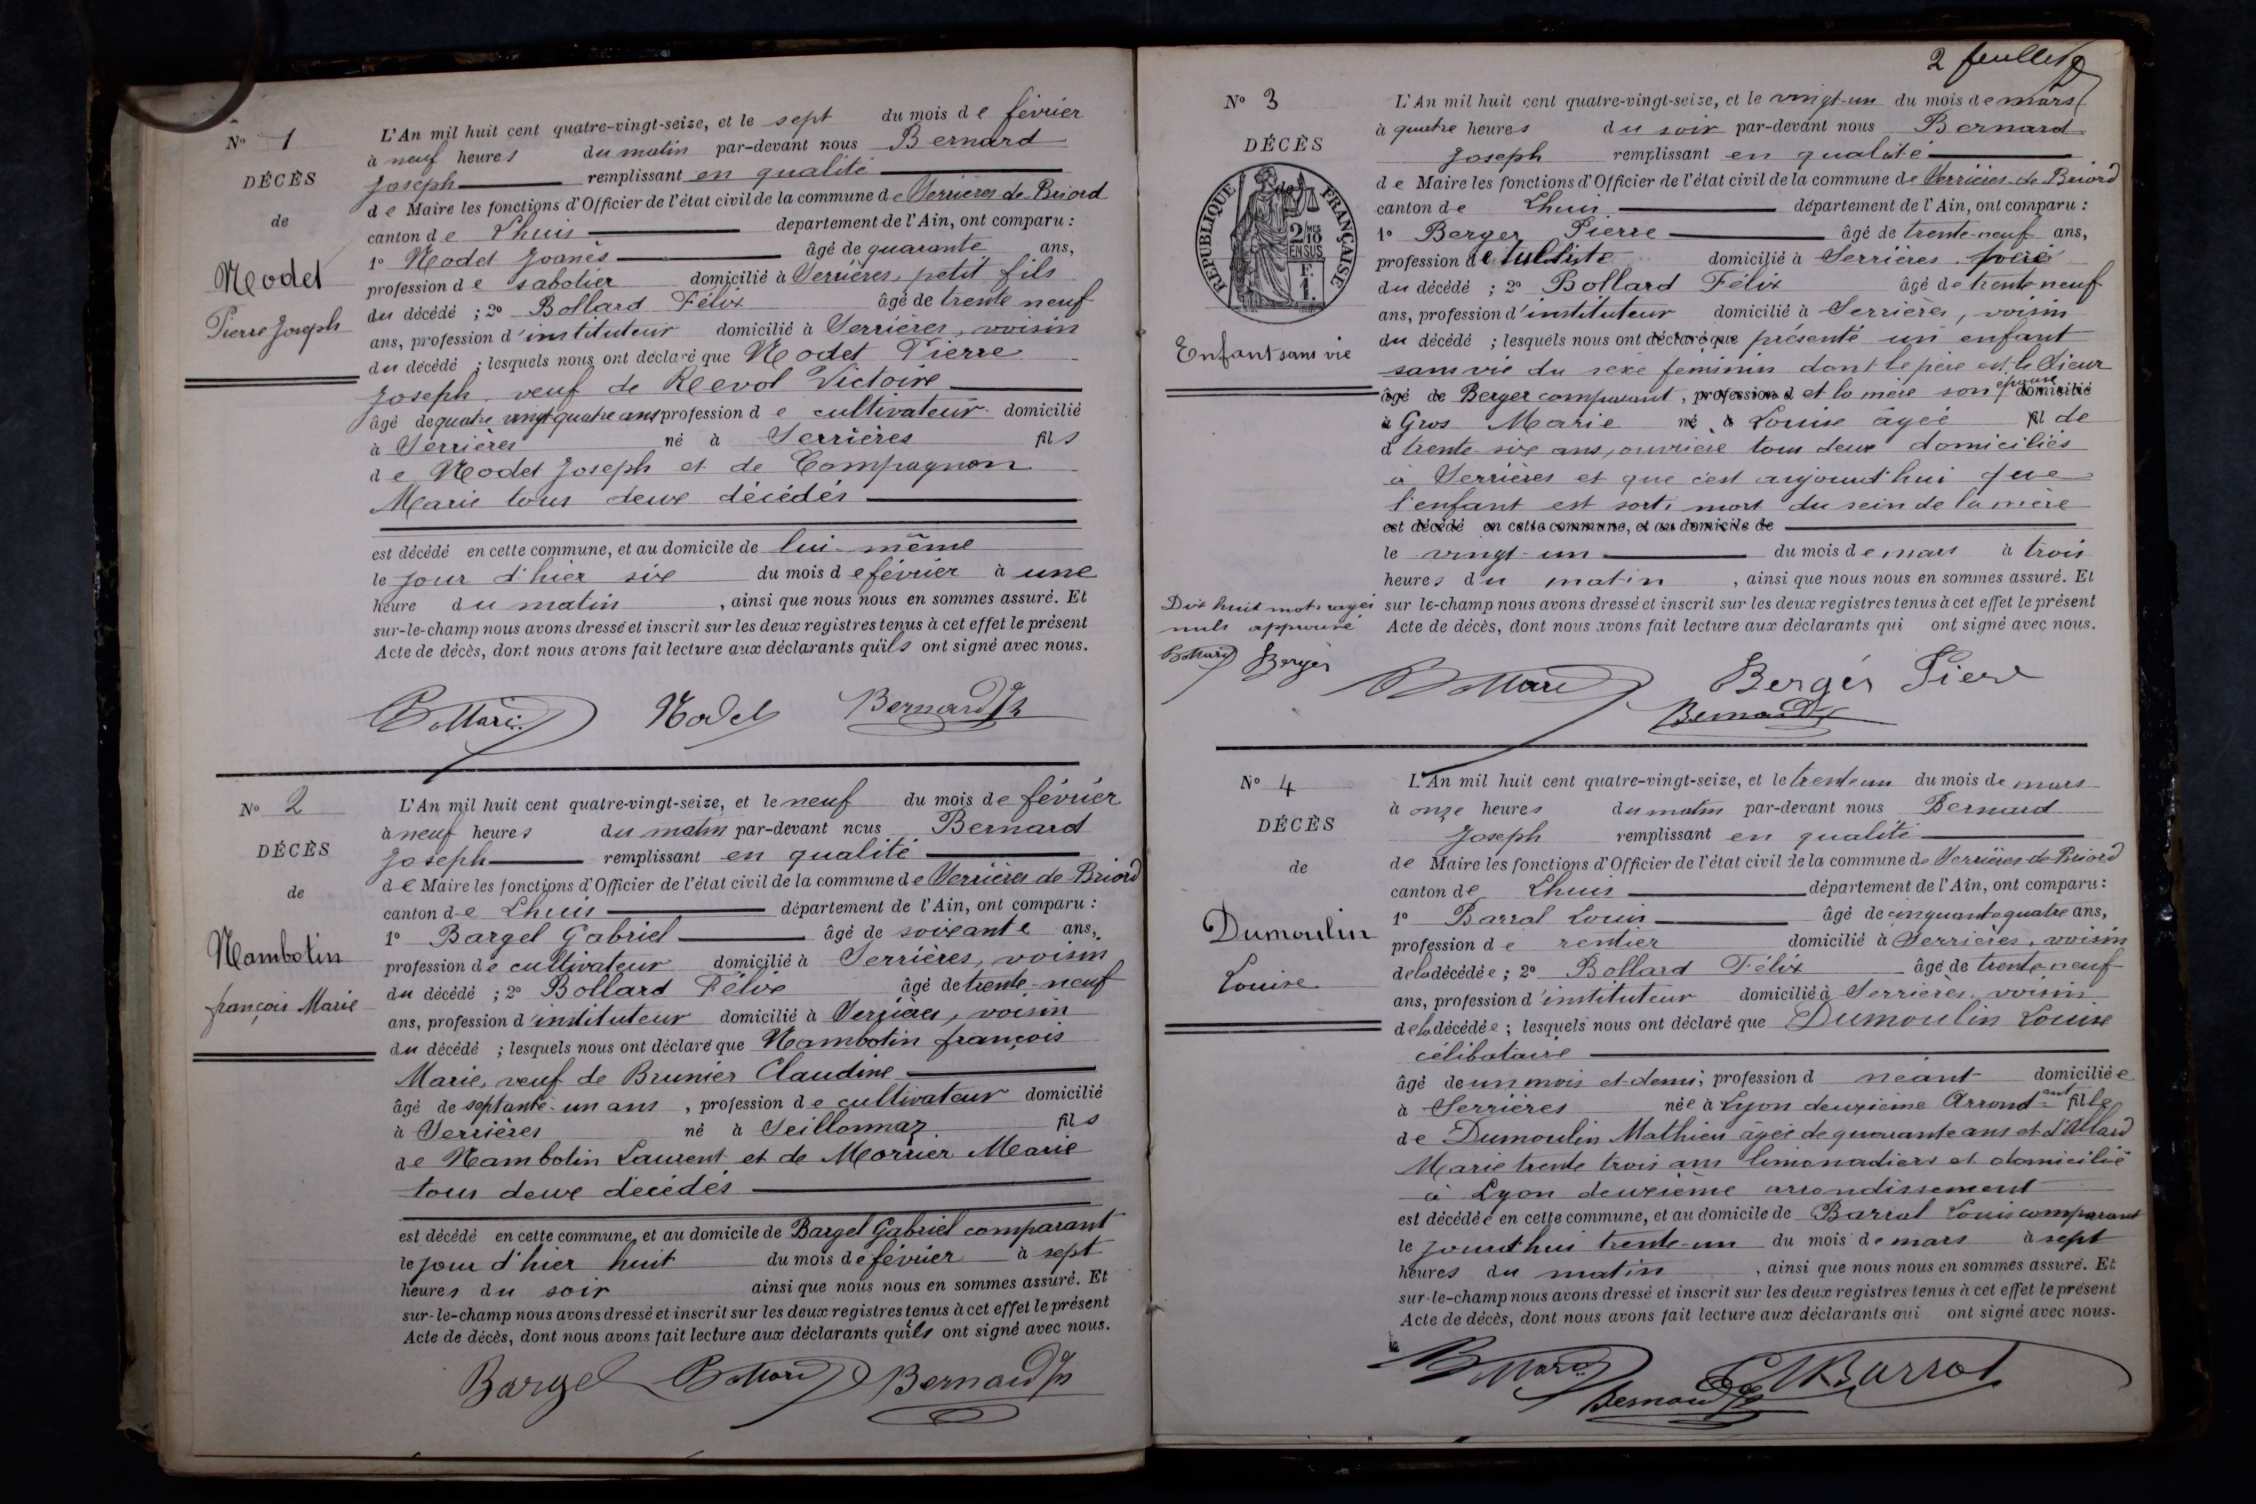 N° 1
DÉCÈS
de
Nodet
Pierre Joseph
L'An mil huit cent quatre-vingt-seize, et le sept du mois de février
à neuf heures du matin par-devant nous Bernard
Joseph remplissant en qualité
de Maire les fonctions d'Officier de l'état civil de la commune de Serrières de Briord
canton de Lhuis département de l'Ain, ont comparu :
1° Nodet Joanès âgé de quarante ans,
profession de sabotier domicilié à Serrières, petit fils
du décédé ; 2° Bollard Félix âgé de trente neuf
ans, profession d'instituteur domicilié à Serrières, voisin
du décédé ; lesquels nous ont déclaré que Nodet Pierre
Joseph, veuf de Revol Victoire
âgé de quatre vingt quatre ans profession de cultivateur domicilié
à Serrières né à Serrières fils
de Nodet Joseph et de Compagnon
Marie tous deux décédés
est décédé en cette commune, et au domicile de lui-même
le jour d'hier six du mois de février à une
heure du matin , ainsi que nous nous en sommes assuré. Et
sur-le-champ nous avons dressé et inscrit sur les deux registres tenus à cet effet le présent
Acte de décès, dont nous avons fait lecture aux déclarants qu'ils ont signé avec nous.
Bollard Nodet Bernard Jh
N° 2
DÉCÈS
de
Nambotin
françois Marie
L'An mil huit cent quatre-vingt-seize, et le neuf du mois de février
à neuf heures du matin par-devant nous Bernard
Joseph remplissant en qualité
de Maire les fonctions d'Officier de l'état civil de la commune de Serrières de Briord
canton de Lhuis département de l'Ain, ont comparu :
1° Bargel Gabriel âgé de soixante ans,
profession de cultivateur domicilié à Serrières, voisin
du décédé ; 2° Bollard Félix âgé de trente-neuf
ans, profession d'instituteur domicilié à Serrières, voisin
du décédé ; lesquels nous ont déclaré que Nambotin françois
Marie, veuf de Brunier Claudine
âgé de septante-un ans , profession de cultivateur domicilié
à Serrières né à Seillonnaz fils
de Nambotin Laurent et de Morrier Marie
tous deux décédés
est décédé en cette commune, et au domicile de Bargel Gabriel comparant
le jour d'hier huit du mois de février à sept
heures du soir ainsi que nous nous en sommes assuré. Et
sur-le-champ nous avons dressé et inscrit sur les deux registres tenus à cet effet le présent
Acte de décès, dont nous avons fait lecture aux déclarants qu'ils ont signé avec nous.
Bargel Bollard Bernard Jh
2 feuillet
N° 3
DÉCÈS
de
RÉPUBLIQUE FRANÇAISE
2/10 EN SUS
Enfant sans vie
L'An mil huit cent quatre-vingt-seize, et le vingt-un du mois de mars
à quatre heures du soir par-devant nous Bernard
Joseph remplissant en qualité
de Maire les fonctions d'Officier de l'état civil de la commune de Serrières-de Briord
canton de Lhuis département de l'Ain, ont comparu :
1° Berger Pierre âgé de trente-neuf ans,
profession de tulliste domicilié à Serrières père
du décédé ; 2° Bollard Félix âgé de trente neuf
ans, profession d'instituteur domicilié à Serrières, voisin
du décédé ; lesquels nous ont déclaré que présenté un enfant
sans vie du sexe féminin dont le père est le sieur
âgé de Berger comparant , profession d et la mère son épouse domicilié
à Gros Marie né à Louise âgée fil de
d trente-six ans, ouvrière tous deux domiciliés
à Serrières et que c'est aujourd'hui que
l'enfant est sorti mort du sein de la mère
est décédé en cette commune, et au domicile de
le vingt-un du mois de mars à trois
heures du matin , ainsi que nous nous en sommes assuré. Et
sur le-champ nous avons dressé et inscrit sur les deux registres tenus à cet effet le présent
Acte de décès, dont nous avons fait lecture aux déclarants qui ont signé avec nous.
Dix huit mots rayés
nuls approuvé
Bollard Berger
Bollard Berger Pierre
Bernard
N° 4
DÉCÈS
de
Dumoulin
Louise
L'An mil huit cent quatre-vingt-seize, et le trente un du mois de mars
à onze heures du matin par-devant nous Bernard
Joseph remplissant en qualité
de Maire les fonctions d'Officier de l'état civil de la commune de Serrières-de Briord
canton de Lhuis département de l'Ain, ont comparu :
1° Barral Louis âgé de cinquante quatre ans,
profession de rentier domicilié à Serrières, voisin
de la décédée ; 2° Bollard Félix âgé de trente neuf
ans, profession d'instituteur domicilié à Serrières voisin
de la décédée ; lesquels nous ont déclaré que Dumoulin Louise
célibataire
âgé de un mois et demi, profession d néant domiciliée
à Serrières née à Lyon deuxième Arrondant fille
de Dumoulin Mathieu âgée de quarante ans et d'Allard
Marie trente trois ans limonadiers et domicilié
à Lyon deuxième arrondissement
est décédée en cette commune, et au domicile de Barral Louis comparant
le jourd'hui trente-un du mois de mars à sept
heures du matin , ainsi que nous nous en sommes assuré. Et
sur-le-champ nous avons dressé et inscrit sur les deux registres tenus à cet effet le présent
Acte de décès, dont nous avons fait lecture aux déclarants qui ont signé avec nous.
Bollard Barral
Bernard